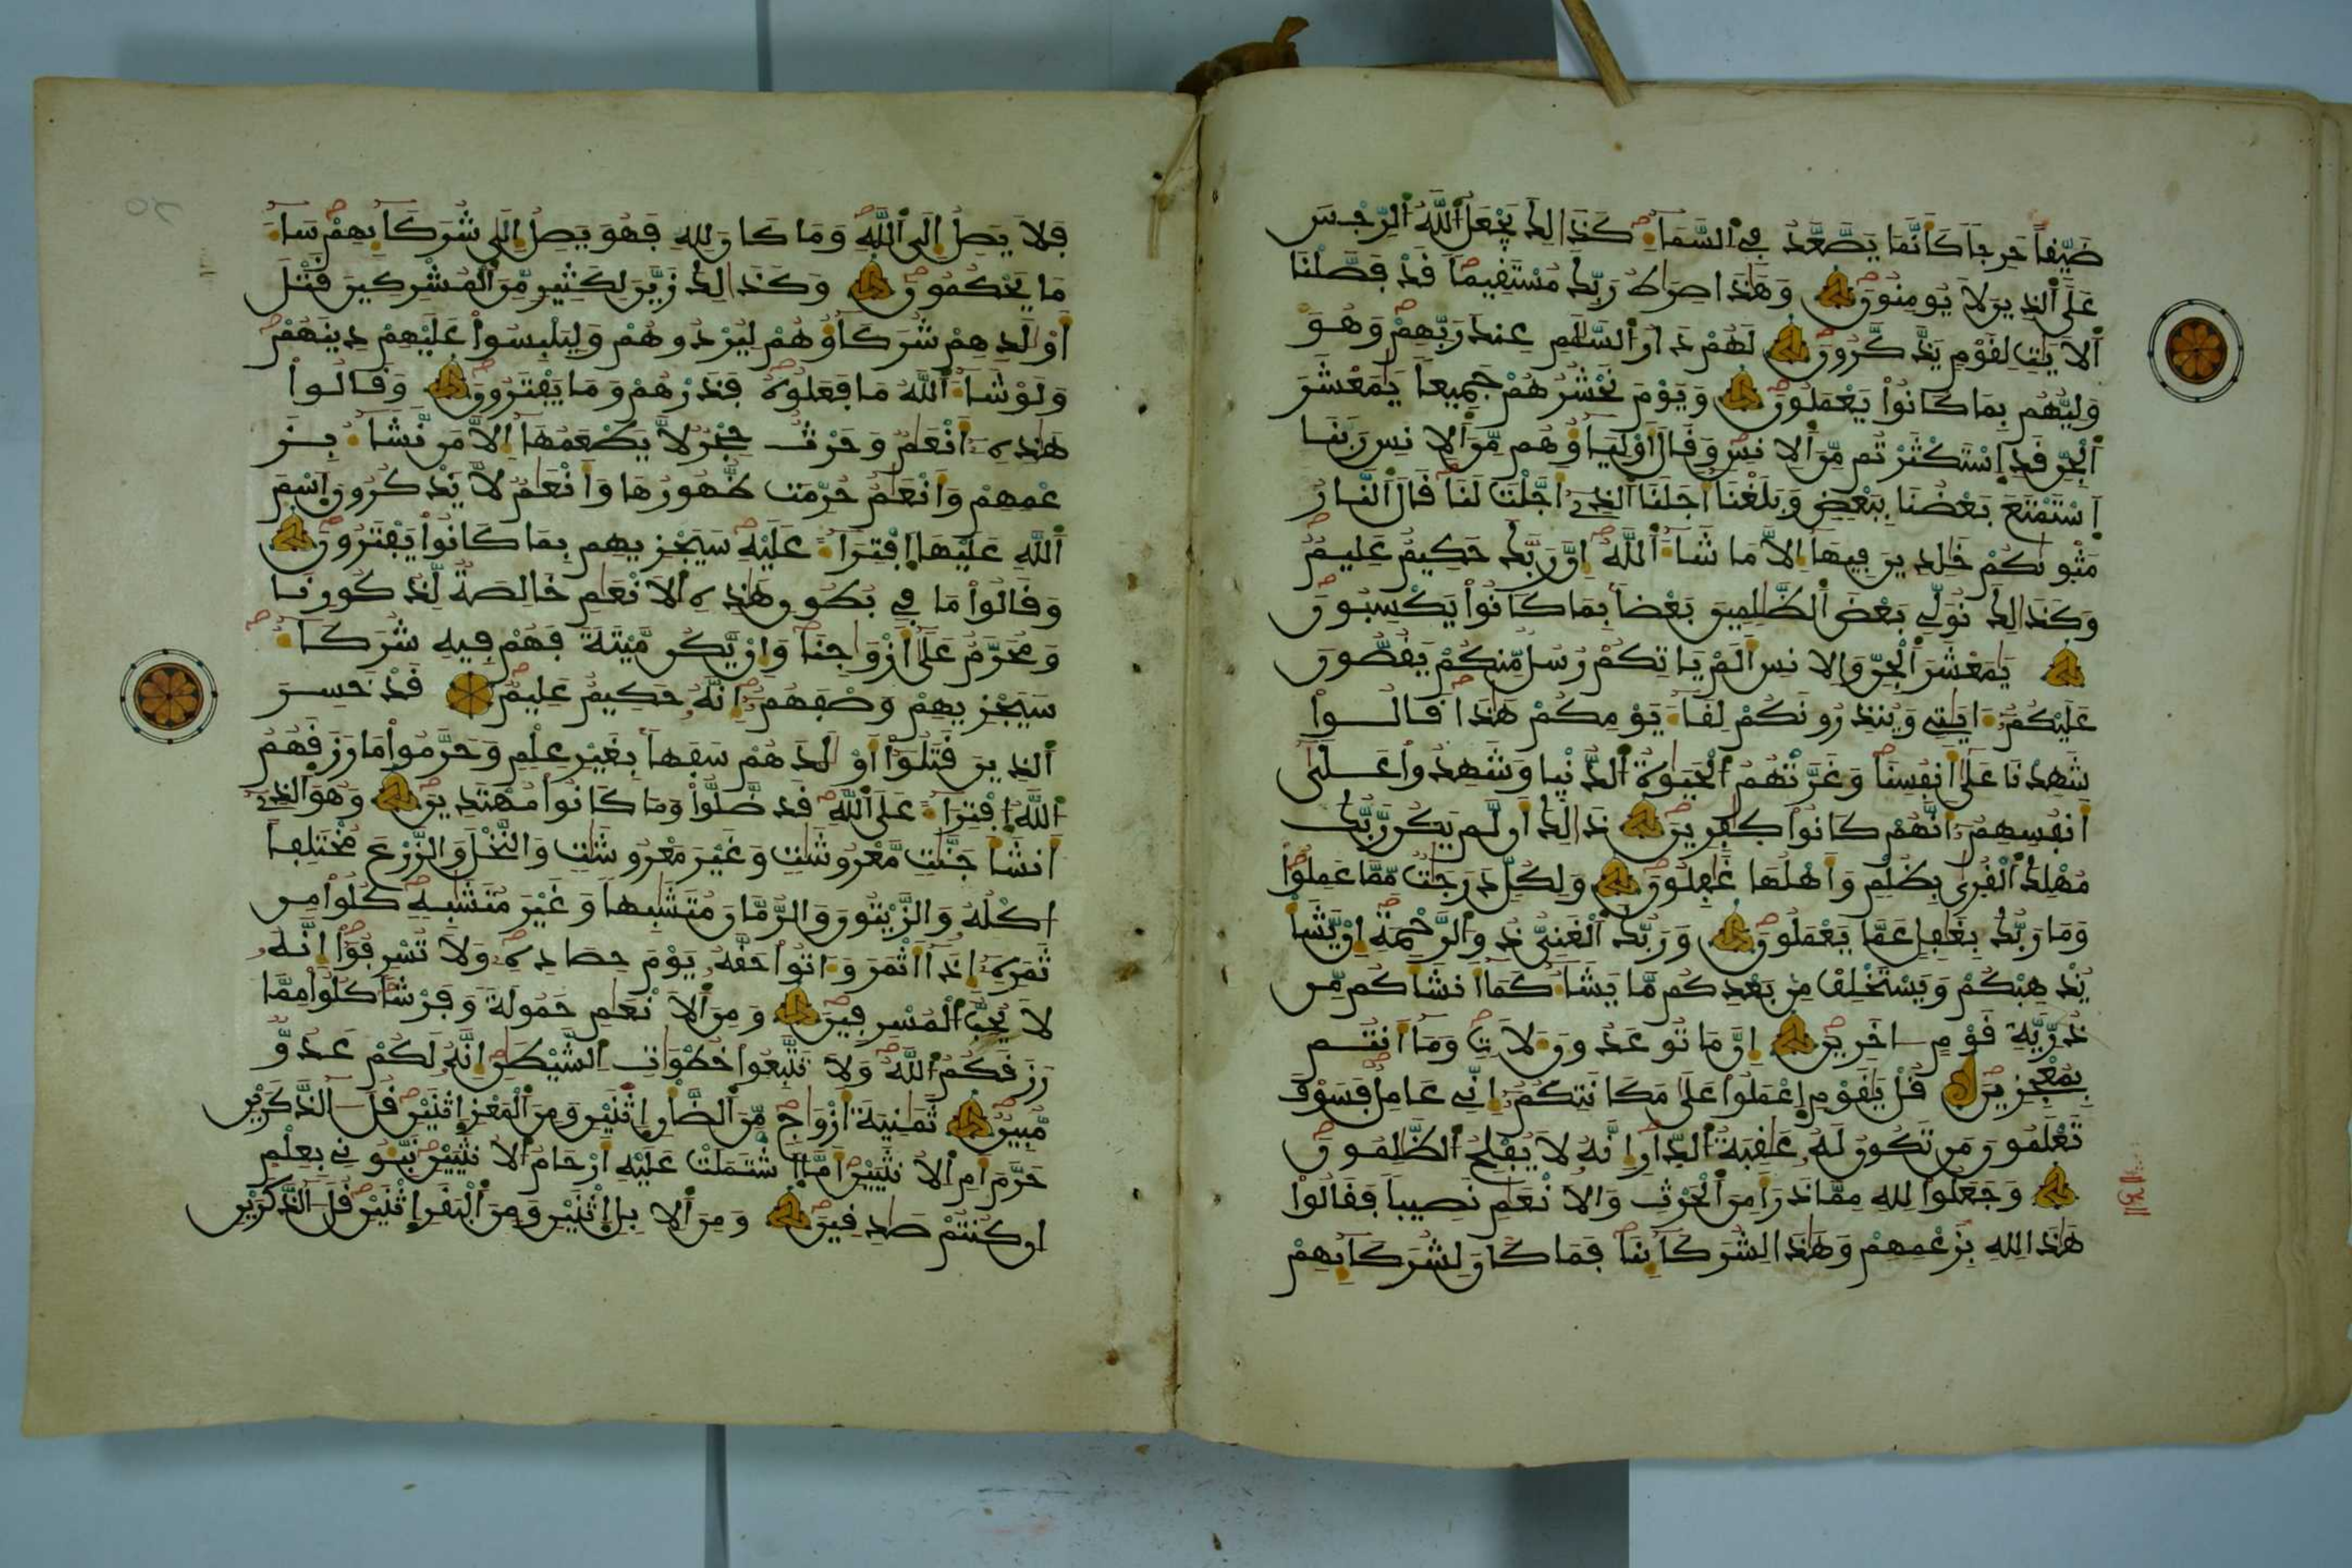 ضَيِّقاً حَرِجاً كَأَنَّمَا يَصَّعَّدُ فِي اَ۬لسَّمَآءِ كَذَٰلِكَ يَجْعَلُ اُ۬للَّهُ اُ۬لرِّجْسَ
عَلَى اَ۬لذِينَ لَا يُومِنُونَ وَهَٰذَا صِرَٰطُ رَبِّكَ مُسْتَقِيماً قَدْ فَصَّلْنَا
اَ۬لَايَٰتِ لِقَوْمٍ يَذَّكَّرُونَ لَهُمْ دَارُ اُ۬لسَّلَٰمِ عِندَ رَبِّهِمْ وَهُوَ
وَلِيُّهُم بِمَا كَانُواْ يَعْمَلُونَ وَيَوْمَ نَحْشُرُهُمْ جَمِيعاً يَٰمَعْشَرَ
اَ۬لْجِنِّ قَدِ اِ۪سْتَكْثَرْتُم مِّنَ اَ۬لِانسِ وَقَالَ أَوْلِيَآؤُهُم مِّنَ اَ۬لِانسِ رَبَّنَا
اَ۪سْتَمْتَعَ بَعْضُنَا بِبَعْضٍ وَبَلَغْنَا أَجَلَنَا اَ۬لذِے أَجَّلْتَ لَنَا قَالَ اَ۬لنَّارُ
مَثْوٜيٰكُمْ خَٰلِدِينَ فِيهَا إِلَّا مَا شَآءَ اَ۬للَّهُ إِنَّ رَبَّكَ حَكِيمٌ عَلِيمٌ
وَكَذَٰلِكَ نُوَلِّے بَعْضَ اَ۬لظَّٰلِمِينَ بَعْضاً بِمَا كَانُواْ يَكْسِبُونَ
يَٰمَعْشَرَ اَ۬لْجِنِّ وَالِانسِ أَلَمْ يَاتِكُمْ رُسُلٌ مِّنكُمْ يَقُصُّونَ
عَلَيْكُمُ ءَايَٰتِے وَيُنذِرُونَكُمْ لِقَآءَ يَوْمِكُمْ هَٰذَا قَالُواْ
شَهِدْنَا عَلَىٰ أَنفُسِنَا وَغَرَّتْهُمُ اُ۬لْحَيَوٰةُ اُ۬لدُّنْيا وَشَهِدُواْ عَلَىٰ
أَنفُسِهِمُ أَنَّهُمْ كَانُواْ كَٰفِرِينَ ذَٰلِكَ أَن لَّمْ يَكُن رَّبُّكَ
مُهْلِكَ اَ۬لْقُرَىٰ بِظُلْمٍ وَأَهْلُهَا غَٰفِلُونَ وَلِكُلٍّ دَرَجَٰتٌ مِّمَّا عَمِلُواْ
وَمَا رَبُّكَ بِغَٰفِلٍ عَمَّا يَعْمَلُونَ وَرَبُّكَ اَ۬لْغَنِيُّ ذُو اُ۬لرَّحْمَةِ إِنْ يَّشَأْ
يُذْهِبْكُمْ وَيَسْتَخْلِفْ مِنۢ بَعْدِكُم مَّا يَشَآءُ كَمَا أَنشَأَكُم مِّن
ذُرِّيَّةِ قَوْمٍ ءَاخَرِينَ إِنَّ مَا تُوعَدُونَ ءَلَاتٍ وَمَا أَنتُم
بِمُعْجِزِينَ قُلْ يَٰقَوْمِ اِ۪عْمَلُواْ عَلَىٰ مَكَانَتِكُمُ إِنِّے عَامِلٌ فَسَوْفَ
تَعْلَمُونَ مَن تَكُونُ لَهُۥ عَٰقِبَةُ اُ۬لدّ۪ارِ إِنَّهُۥ لَا يُفْلِحُ اُ۬لظَّٰلِمُونَ
وَجَعَلُواْ لِلهِ مِمَّا ذَرَأَ مِنَ اَ۬لْحَرْثِ وَالَانْعَٰمِ نَصِيباً فَقَالُواْ
هَٰذَا لِلهِ بِزَعْمِهِمْ وَهَٰذَا لِشُرَكَآئِنَا فَمَا كَانَ لِشُرَكَآئِهِمْ
فَلَا يَصِلُ إِلَى اَ۬للَّهِ وَمَا كَانَ لِلهِ فَهُوَ يَصِلُ إِلَىٰ شُرَكَآئِهِمْ سَآءَ
مَا يَحْكُمُونَ وَكَذَٰلِكَ زَيَّنَ لِكَثِيرٍ مِّنَ اَ۬لْمُشْرِكِينَ قَتْلَ
أَوْلَٰدِهِمْ شُرَكَآؤُهُمْ لِيُرْدُوهُمْ وَلِيَلْبِسُواْ عَلَيْهِمْ دِينَهُمْ
وَلَوْ شَآءَ اَ۬للَّهُ مَا فَعَلُوهُ فَذَرْهُمْ وَمَا يَفْتَرُونَ وَقَالُواْ
هَٰذِهِۦ أَنْعَٰمٌ وَحَرْثٌ حِجْرٌ لَّا يَطْعَمُهَا إِلَّا مَن نَّشَآءُ بِزَ
عْمِهِمْ وَأَنْعَٰمٌ حُرِّمَتْ ظُهُورُهَا وَأَنْعَٰمٌ لَّا يَذْكُرُونَ اَ۪سْمَ
اَ۬للَّهِ عَلَيْهَا اَ۪فْتِرَآءً عَلَيْهِ سَيَجْزِيهِم بِمَا كَانُواْ يَفْتَرُونَ
وَقَالُواْ مَا فِي بُطُونِ هَٰذِهِ اِ۬لَانْعَٰمِ خَالِصَةٌ لِّذُكُورِنَا
وَمُحَرَّمٌ عَلَىٰ أَزْوَٰجِنَا وَإِنْ يَّكُن مَّيْتَةً فَهُمْ فِيهِ شُرَكَآءُ
سَيَجْزِيهِمْ وَصْفَهُمُ إِنَّهُۥ حَكِيمٌ عَلِيمٌ قَدْ خَسِرَ
اَ۬لذِينَ قَتَلُواْ أَوْلَٰدَهُمْ سَفَهاً بِغَيْرِ عِلْمٍ وَحَرَّمُواْ مَا رَزَقَهُمُ
اُ۬للَّهُ اُ۪فْتِرَآءً عَلَى اَ۬للَّهِ قَد ضَّلُّواْ وَمَا كَانُواْ مُهْتَدِينَ وَهُوَ اَ۬لذِے
أَنشَأَ جَنَّٰتٍ مَّعْرُوشَٰتٍ وَغَيْرَ مَعْرُوشَٰتٍ وَالنَّخْلَ وَالزَّرْعَ مُخْتَلِفاً
أُكْلُهُۥ وَالزَّيْتُونَ وَالرُّمَّانَ مُتَشَٰبِهاً وَغَيْرَ مُتَشَٰبِهٍ كُلُواْ مِن
ثَمَرِهِۦ إِذَا أَثْمَرَ وَءَاتُواْ حَقَّهُۥ يَوْمَ حِصَادِهِۦ وَلَا تُسْرِفُواْ إِنَّهُۥ
لَا يُحِبُّ اُ۬لْمُسْرِفِينَ وَمِنَ اَ۬لَانْعَٰمِ حَمُولَةً وَفَرْشاً كُلُواْ مِمَّا
رَزَقَكُمُ اُ۬للَّهُ وَلَا تَتَّبِعُواْ خُطْوَٰتِ اِ۬لشَّيْطَٰنِ إِنَّهُۥ لَكُمْ عَدُوٌّ
مُّبِينٌ ثَمَٰنِيَةَ أَزْوَٰجٍ مِّنَ اَ۬لضَّأْنِ اِ۪ثْنَيْنِ وَمِنَ اَ۬لْمَعْزِ اِ۪ثْنَيْنِ قُلَ ءَآلذَّكَرَيْنِ
حَرَّمَ أَمِ اِ۬لُانثَيَيْنِ أَمَّا اَ۪شْتَمَلَتْ عَلَيْهِ أَرْحَامُ اُ۬لُانثَيَيْنِ نَبِّـُٔونِے بِعِلْمٍ
إِن كُنتُمْ صَٰدِقِينَ وَمِنَ اَ۬لِابِلِ اِ۪ثْنَيْنِ وَمِنَ اَ۬لْبَقَرِ اِ۪ثْنَيْنِ قُلَ ءَآلذَّكَرَيْنِ